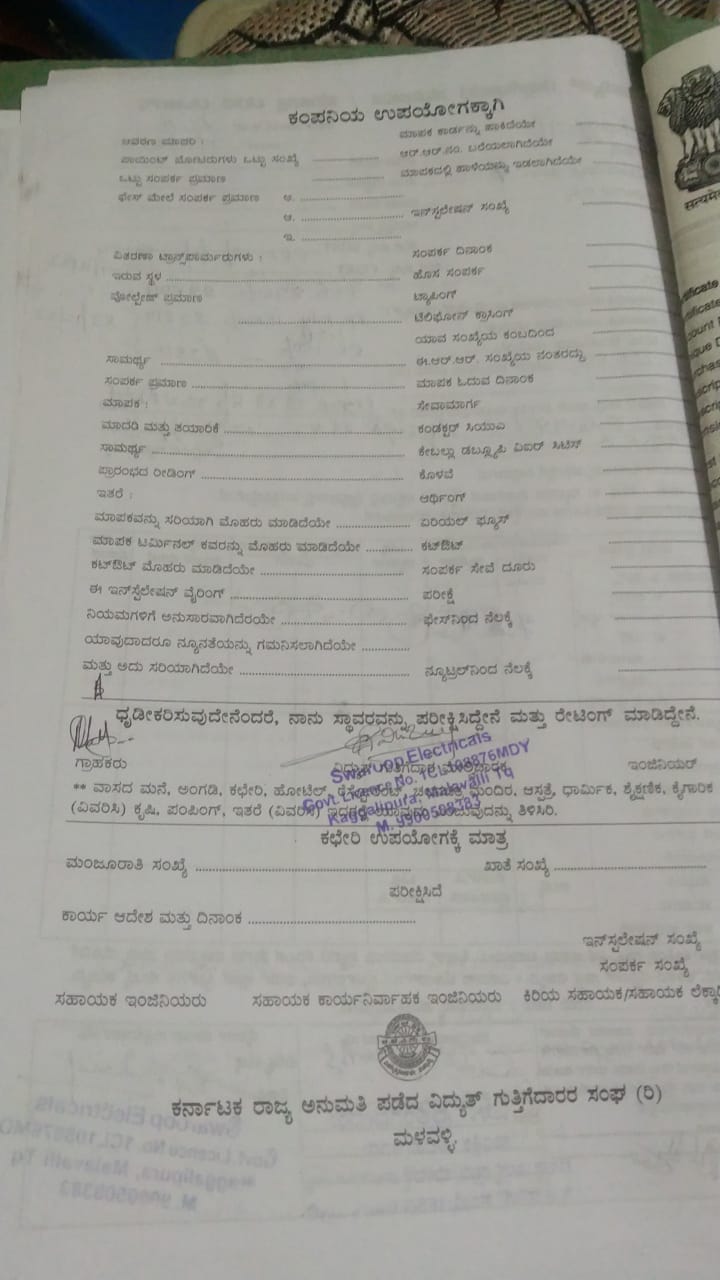 ಕಂಪನಿಯ ಉಪಯೋಗಕ್ಕಾಗಿ
ಆವರಣ ಮಾಪನ :
ಮಾಪಕ ಕಾರ್ಡನ್ನು ಹಾಕಿದೆಯೇ
ಪಾಯಿಂಟ್ ಮೋಟರುಗಳು ಒಟ್ಟು ಸಂಖ್ಯೆ
ಆರ್.ಆರ್.ನಂ. ಬರೆಯಲಾಗಿದೆಯೇ
ಒಟ್ಟು ಸಂಪರ್ಕ ಪ್ರಮಾಣ
ಮಾಪಕದಲ್ಲಿ ಹಾಳೆಯನ್ನು ಇಡಲಾಗಿದೆಯೇ
ಫೇಸ್ ಮೇಲೆ ಸಂಪರ್ಕ ಪ್ರಮಾಣ ಅ.
ಆ. ಇನ್‌ಸ್ಟಲೇಷನ್ ಸಂಖ್ಯೆ
ಇ.
ವಿತರಣಾ ಟ್ರಾನ್ಸ್‌ಫಾರ್ಮರುಗಳು :
ಸಂಪರ್ಕ ದಿನಾಂಕ
ಇರುವ ಸ್ಥಳ
ಹೊಸ ಸಂಪರ್ಕ
ವೋಲ್ಟೇಜ್ ಪ್ರಮಾಣ
ಟ್ಯಾಪಿಂಗ್
ಟೆಲಿಫೋನ್ ಕ್ರಾಸಿಂಗ್
ಯಾವ ಸಂಖ್ಯೆಯ ಕಂಬದಿಂದ
ಸಾಮರ್ಥ್ಯ
ಈ.ಆರ್.ಆರ್. ಸಂಖ್ಯೆಯ ನಂತರದ್ದು
ಸಂಪರ್ಕ ಪ್ರಮಾಣ
ಮಾಪಕ ಓದುವ ದಿನಾಂಕ
ಮಾಪಕ :
ಸೇವಾಮಾರ್ಗ
ಮಾದರಿ ಮತ್ತು ತಯಾರಿಕೆ
ಕಂಡಕ್ಟರ್ ಸಿಯುಎ
ಸಾಮರ್ಥ್ಯ
ಕೇಬಲ್ಲು ಡಬ್ಲ್ಯೂಪಿ ವಿಐಆರ್ ಸಿಟಿಸಿ
ಪ್ರಾರಂಭದ ರೀಡಿಂಗ್
ಕೊಳವೆ
ಇತರೆ :
ಅರ್ಥಿಂಗ್
ಮಾಪಕವನ್ನು ಸರಿಯಾಗಿ ಮೊಹರು ಮಾಡಿದೆಯೇ
ಏರಿಯಲ್ ಫ್ಯೂಸ್
ಮಾಪಕ ಟರ್ಮಿನಲ್ ಕವರನ್ನು ಮೊಹರು ಮಾಡಿದೆಯೇ
ಕಟ್‌ಔಟ್
ಕಟ್‌ಔಟ್ ಮೊಹರು ಮಾಡಿದೆಯೇ
ಸಂಪರ್ಕ ಸೇವೆ ದೂರು
ಈ ಇನ್‌ಸ್ಟೆಲೇಷನ್ ವೈರಿಂಗ್
ಪರೀಕ್ಷೆ
ನಿಯಮಗಳಿಗೆ ಅನುಸಾರವಾಗಿದೆರಯೇ
ಫೇಸ್‌ನಿಂದ ನೆಲಕ್ಕೆ
ಯಾವುದಾದರೂ ನ್ಯೂನತೆಯನ್ನು ಗಮನಿಸಲಾಗಿದೆಯೇ
ಮತ್ತು ಅದು ಸರಿಯಾಗಿದೆಯೇ
ನ್ಯೂಟ್ರಲ್‌ನಿಂದ ನೆಲಕ್ಕೆ
ಧೃಡೀಕರಿಸುವುದೇನೆಂದರೆ, ನಾನು ಸ್ಥಾವರವನ್ನು ಪರೀಕ್ಷಿಸಿದ್ದೇನೆ ಮತ್ತು ರೇಟಿಂಗ್ ಮಾಡಿದ್ದೇನೆ.
ಗ್ರಾಹಕರು ವಿದ್ಯುತ್ ಗುತ್ತಿಗೆದಾರ ಇಂಜಿನಿಯರ್
Swaroop Electricals
Govt. Licence No. 1CL108876MDY
Kaggalipura, Malavalli Tq
M. 9900508383
** ವಾಸದ ಮನೆ, ಅಂಗಡಿ, ಕಛೇರಿ, ಹೋಟೆಲ್, ರೆಸ್ಟೋರೆಂಟ್, ಮಂದಿರ, ಆಸ್ಪತ್ರೆ, ಧಾರ್ಮಿಕ, ಶೈಕ್ಷಣಿಕ, ಕೈಗಾರಿಕ
(ವಿವರಿಸಿ) ಕೃಷಿ, ಪಂಪಿಂಗ್, ಇತರೆ (ವಿವರಿಸಿ) ತಿಳಿಸಿರಿ.
ಕಛೇರಿ ಉಪಯೋಗಕ್ಕೆ ಮಾತ್ರ
ಮಂಜೂರಾತಿ ಸಂಖ್ಯೆ ಖಾತೆ ಸಂಖ್ಯೆ
ಪರೀಕ್ಷಿಸಿದೆ
ಕಾರ್ಯ ಆದೇಶ ಮತ್ತು ದಿನಾಂಕ
ಇನ್‌ಸ್ಟಲೇಷನ್ ಸಂಖ್ಯೆ
ಸಂಪರ್ಕ ಸಂಖ್ಯೆ
ಸಹಾಯಕ ಇಂಜಿನಿಯರು ಸಹಾಯಕ ಕಾರ್ಯನಿರ್ವಾಹಕ ಇಂಜಿನಿಯರು ಕಿರಿಯ ಸಹಾಯಕ/ಸಹಾಯಕ
ಕರ್ನಾಟಕ ರಾಜ್ಯ ಅನುಮತಿ ಪಡೆದ ವಿದ್ಯುತ್ ಗುತ್ತಿಗೆದಾರರ ಸಂಘ (ರಿ)
ಮಳವಳ್ಳಿ.